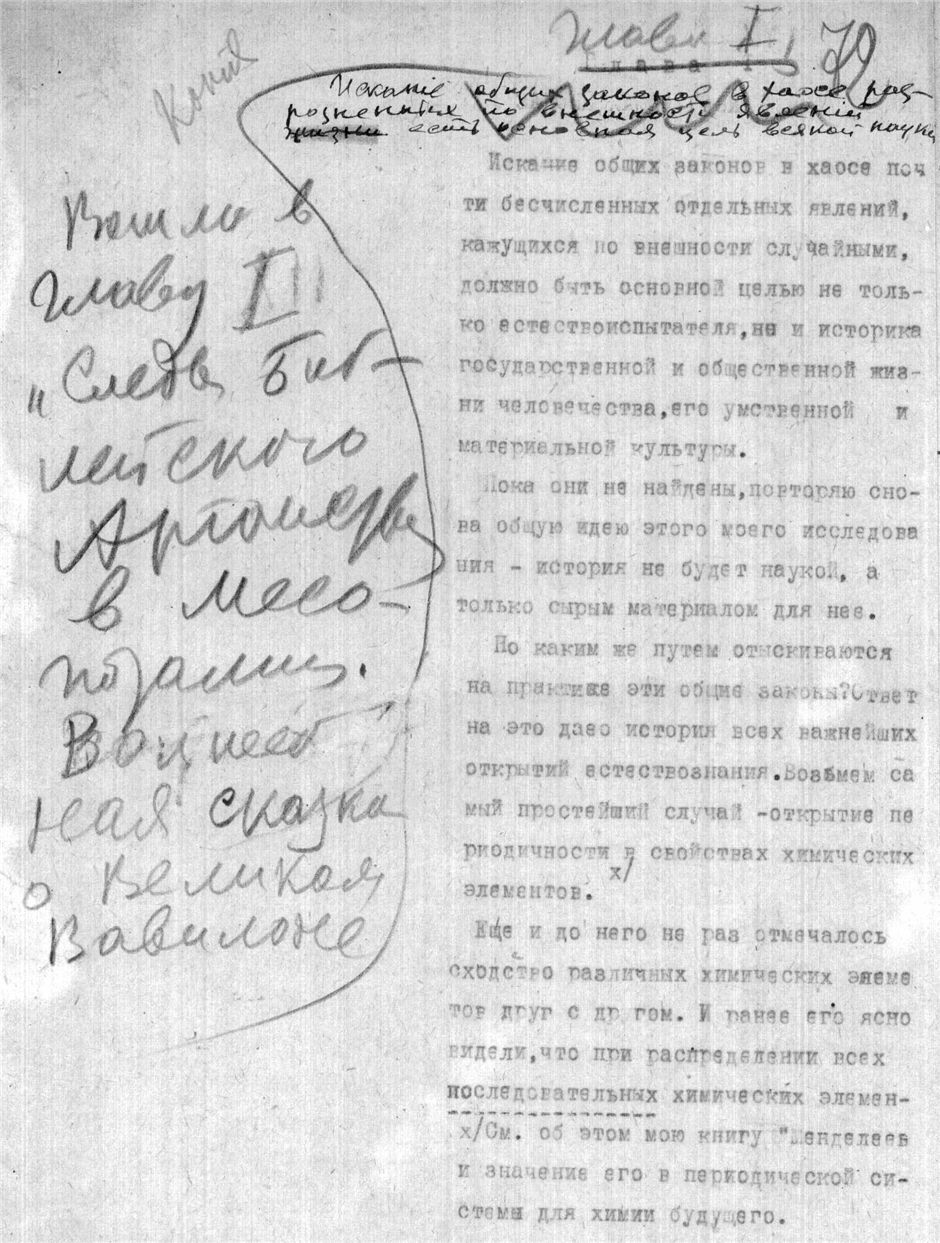 Глава I, 79
Глава I
Копия
Искание общих законов в хаосе раз-
розненных по внешности явлений
жизни есть основная цель всякой науки
Вошло в
главу I
"Следы Биб-
лейского
Артаксеркса
в Месо-
потамии.
Волшеб
ная сказка
о Великом
Вавилоне
Искание общих законов в хаосе поч
ти бесчисленных отдельных явлений,
кажущихся по внешности случайными,
должно быть основной целью не толь-
ко естествоиспытателя,но и историка
государственной и общественной жиз-
ни человечества,его умственной и
материальной культуры.
Пока они не найдены,повторяю сно-
ва общую идею этого моего исследова
ния - история не будет наукой, а
только сырым материалом для нее.
Но каким же путем отыскиваются
на практике эти общие законы?Ответ
на это даво история всех важнейших
открытий естествознания.Возьмем са
мый простейший случай -открытие пе
риодичности в свойствах химических
элементов. х/
Еще и до него не раз отмечалось
сходство различных химических элеме
тов друг с др гом. И ранее его ясно
видели,что при распределении всех
последовательных химических элемен-
х/См. об этом мою книгу "Менделеев
и значение его в периодической си-
стемы для химии будущего.